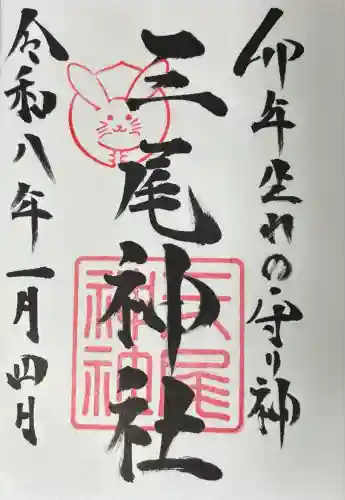 卯年生れの守り神
三尾神社
令和八年一月四日
三尾神社